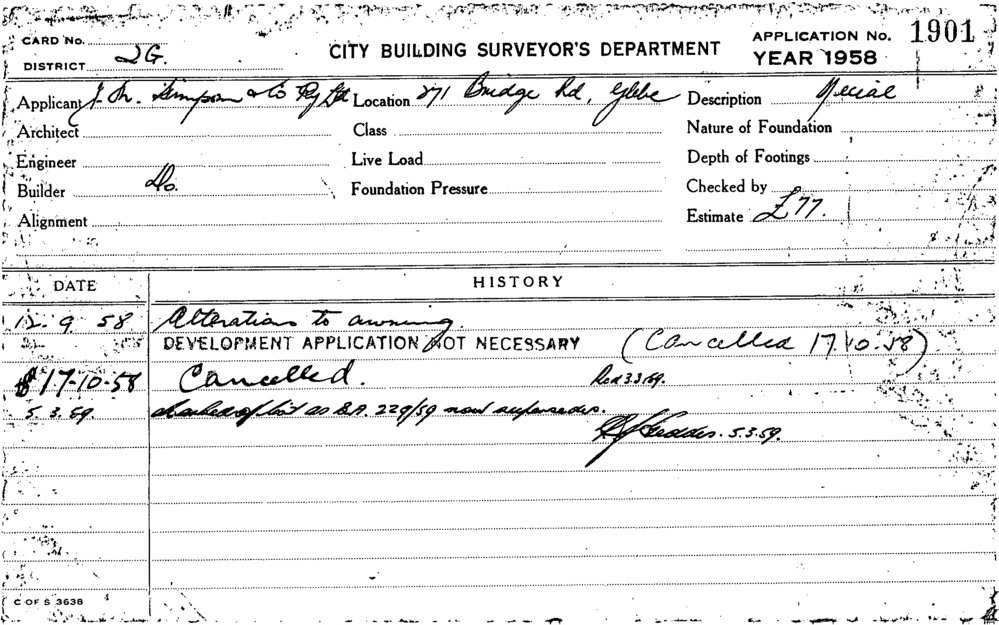 CARD No.
DISTRICT 2G.
CITY BUILDING SURVEYOR'S DEPARTMENT
APPLICATION No. 1901
YEAR 1958
Applicant Simpson & Co Pty Ltd Location 271 Bridge Rd, Glebe Description Special
Architect Class Nature of Foundation
Engineer Live Load Depth of Footings
Builder Do. Foundation Pressure Checked by
Alignment Estimate £77.
DATE HISTORY
12.9 58 Alterations to awning.
DEVELOPMENT APPLICATION NOT NECESSARY (Cancelled 17.10.58)
17-10-58 Cancelled. 3.3.59.
5.3.59 as B.A. 229/59 now supersedes.
Geddes. 5.3.59.
C OF S 3638